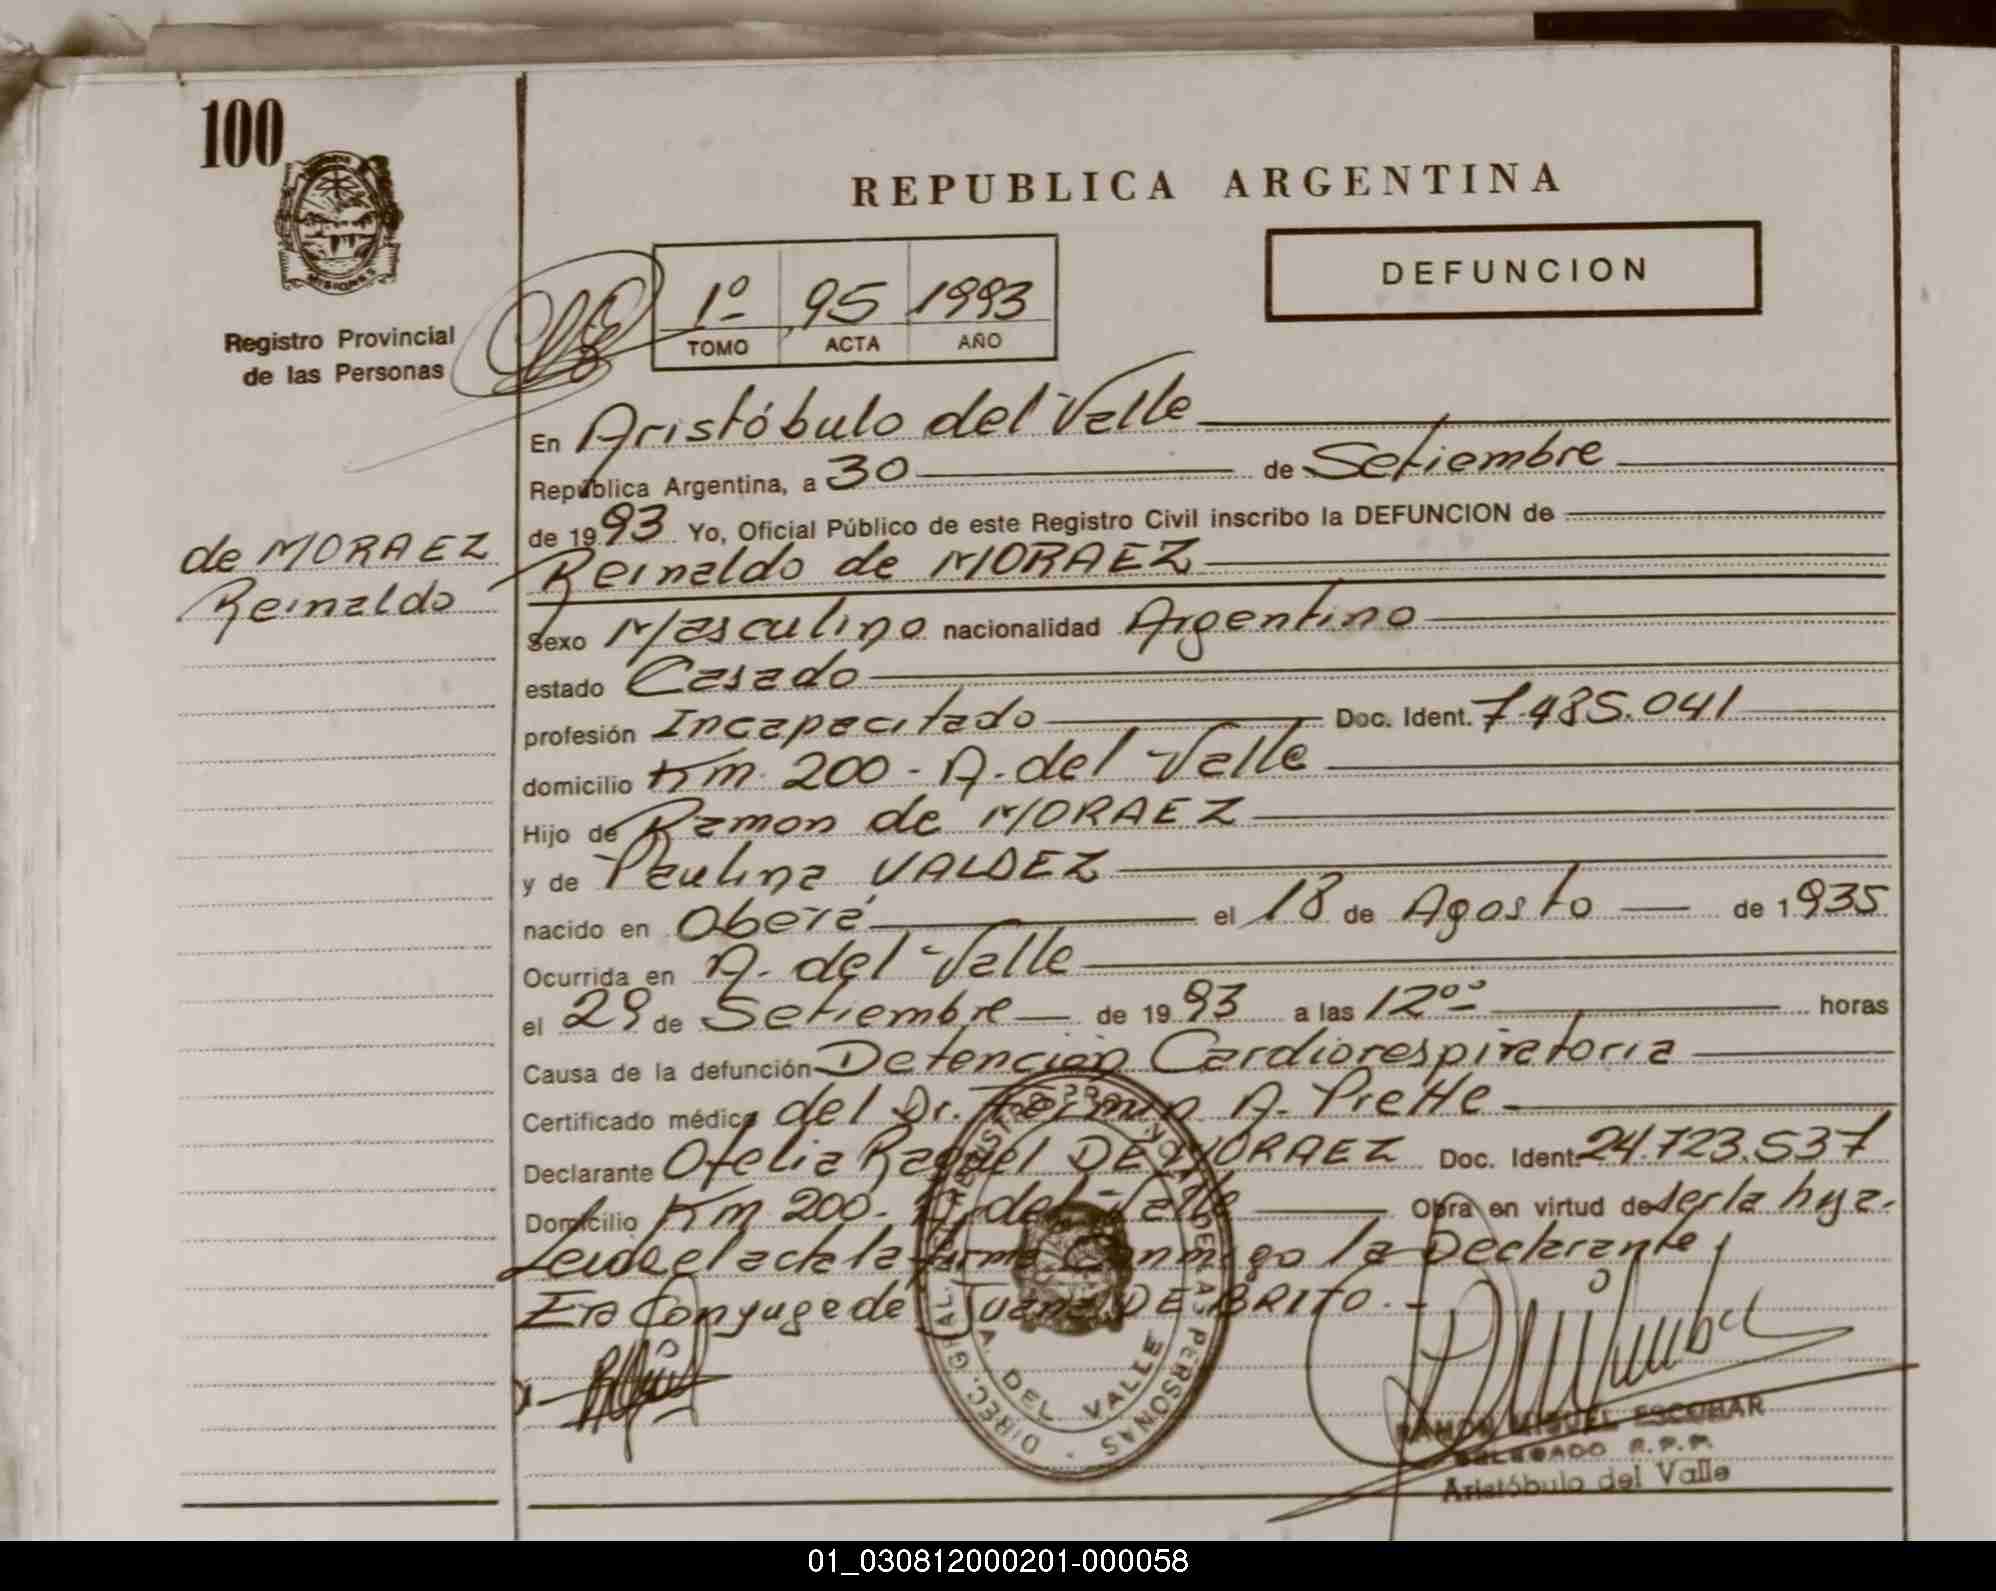 100
MISIONES
Registro Provincial
de las Personas
REPUBLICA ARGENTINA
DEFUNCION
1º 95 1993
TOMO ACTA AÑO
En Aristóbulo del Valle
República Argentina, a 30 de Setiembre
de 1993 Yo, Oficial Público de este Registro Civil inscribo la DEFUNCION de
de MORAEZ
Reinaldo
Reinaldo de MORAEZ
Sexo Masculino nacionalidad Argentino
estado Casado
profesión Incapacitado Doc. Ident. 7.485.041
domicilio Km. 200 - A. del Valle
Hijo de Ramon de MORAEZ
y de Paulina VALDEZ
nacido en Oberá el 18 de Agosto de 1935
Ocurrida en A. del Valle
el 29 de Setiembre de 1993 a las 12ºº horas
Causa de la defunción Detención Cardiorespiratoria
Certificado médico del Dr. Fermin A. Prette
Declarante Ofelia Raquel DE MORAEZ Doc. Ident. 24.723.537
Domicilio Km 200. A. del Valle Obra en virtud de ser la hija.
Leida el acta la firma Conmigo la Declarante,
Era Conyuge de Juana DE BRITO.-
DE LAS PERSONAS - DIREC. GRAL.
A. DEL VALLE
RAMON MIGUEL ESCOBAR
DELEGADO R.P.P.
Aristóbulo del Valle
01_030812000201-000058